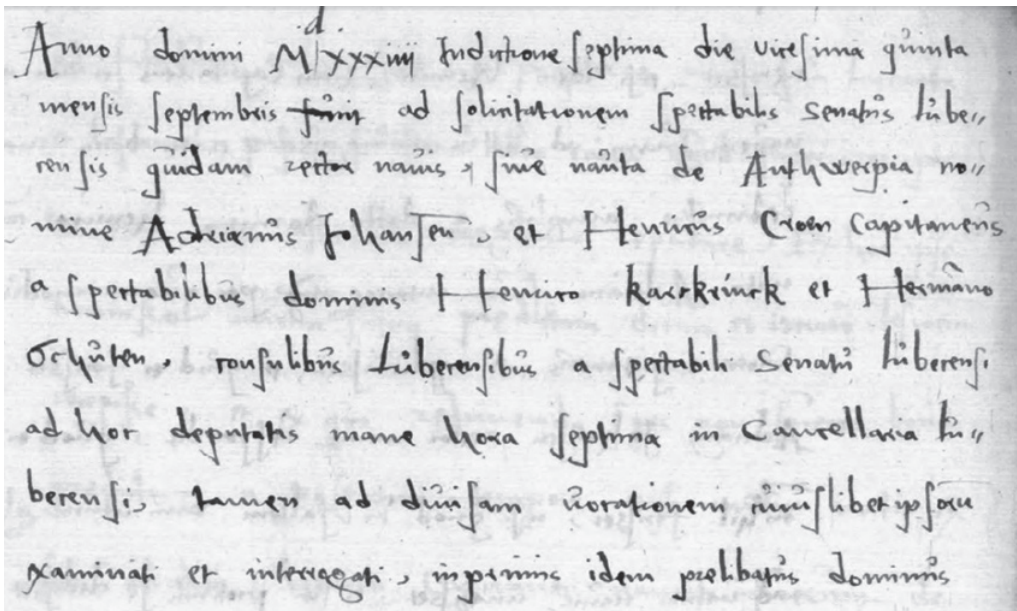 Anno domini Mdxxxiiii Indictione septima die vicesima quinta
mensis septembris ad solicitationem spectabilis Senatus Lube„
censis quidam rector navis, sive nauta de Anthwerpia no„
mine Adrianus Johansen, et Henricus Croen Capitaneus
a pectabilibus dominis Henrico Karckrinck et Hermanno
Schuten, consulibus Lubecensibus a spectabili Senatu lubecensi
ad hoc deputatis mane hora septima in Cancellaria lu„
becensi, tamen ad divisam vocationem cuiuslibet ipsorum
xaminati et interrogati, inprimis idem prelibatus dominus